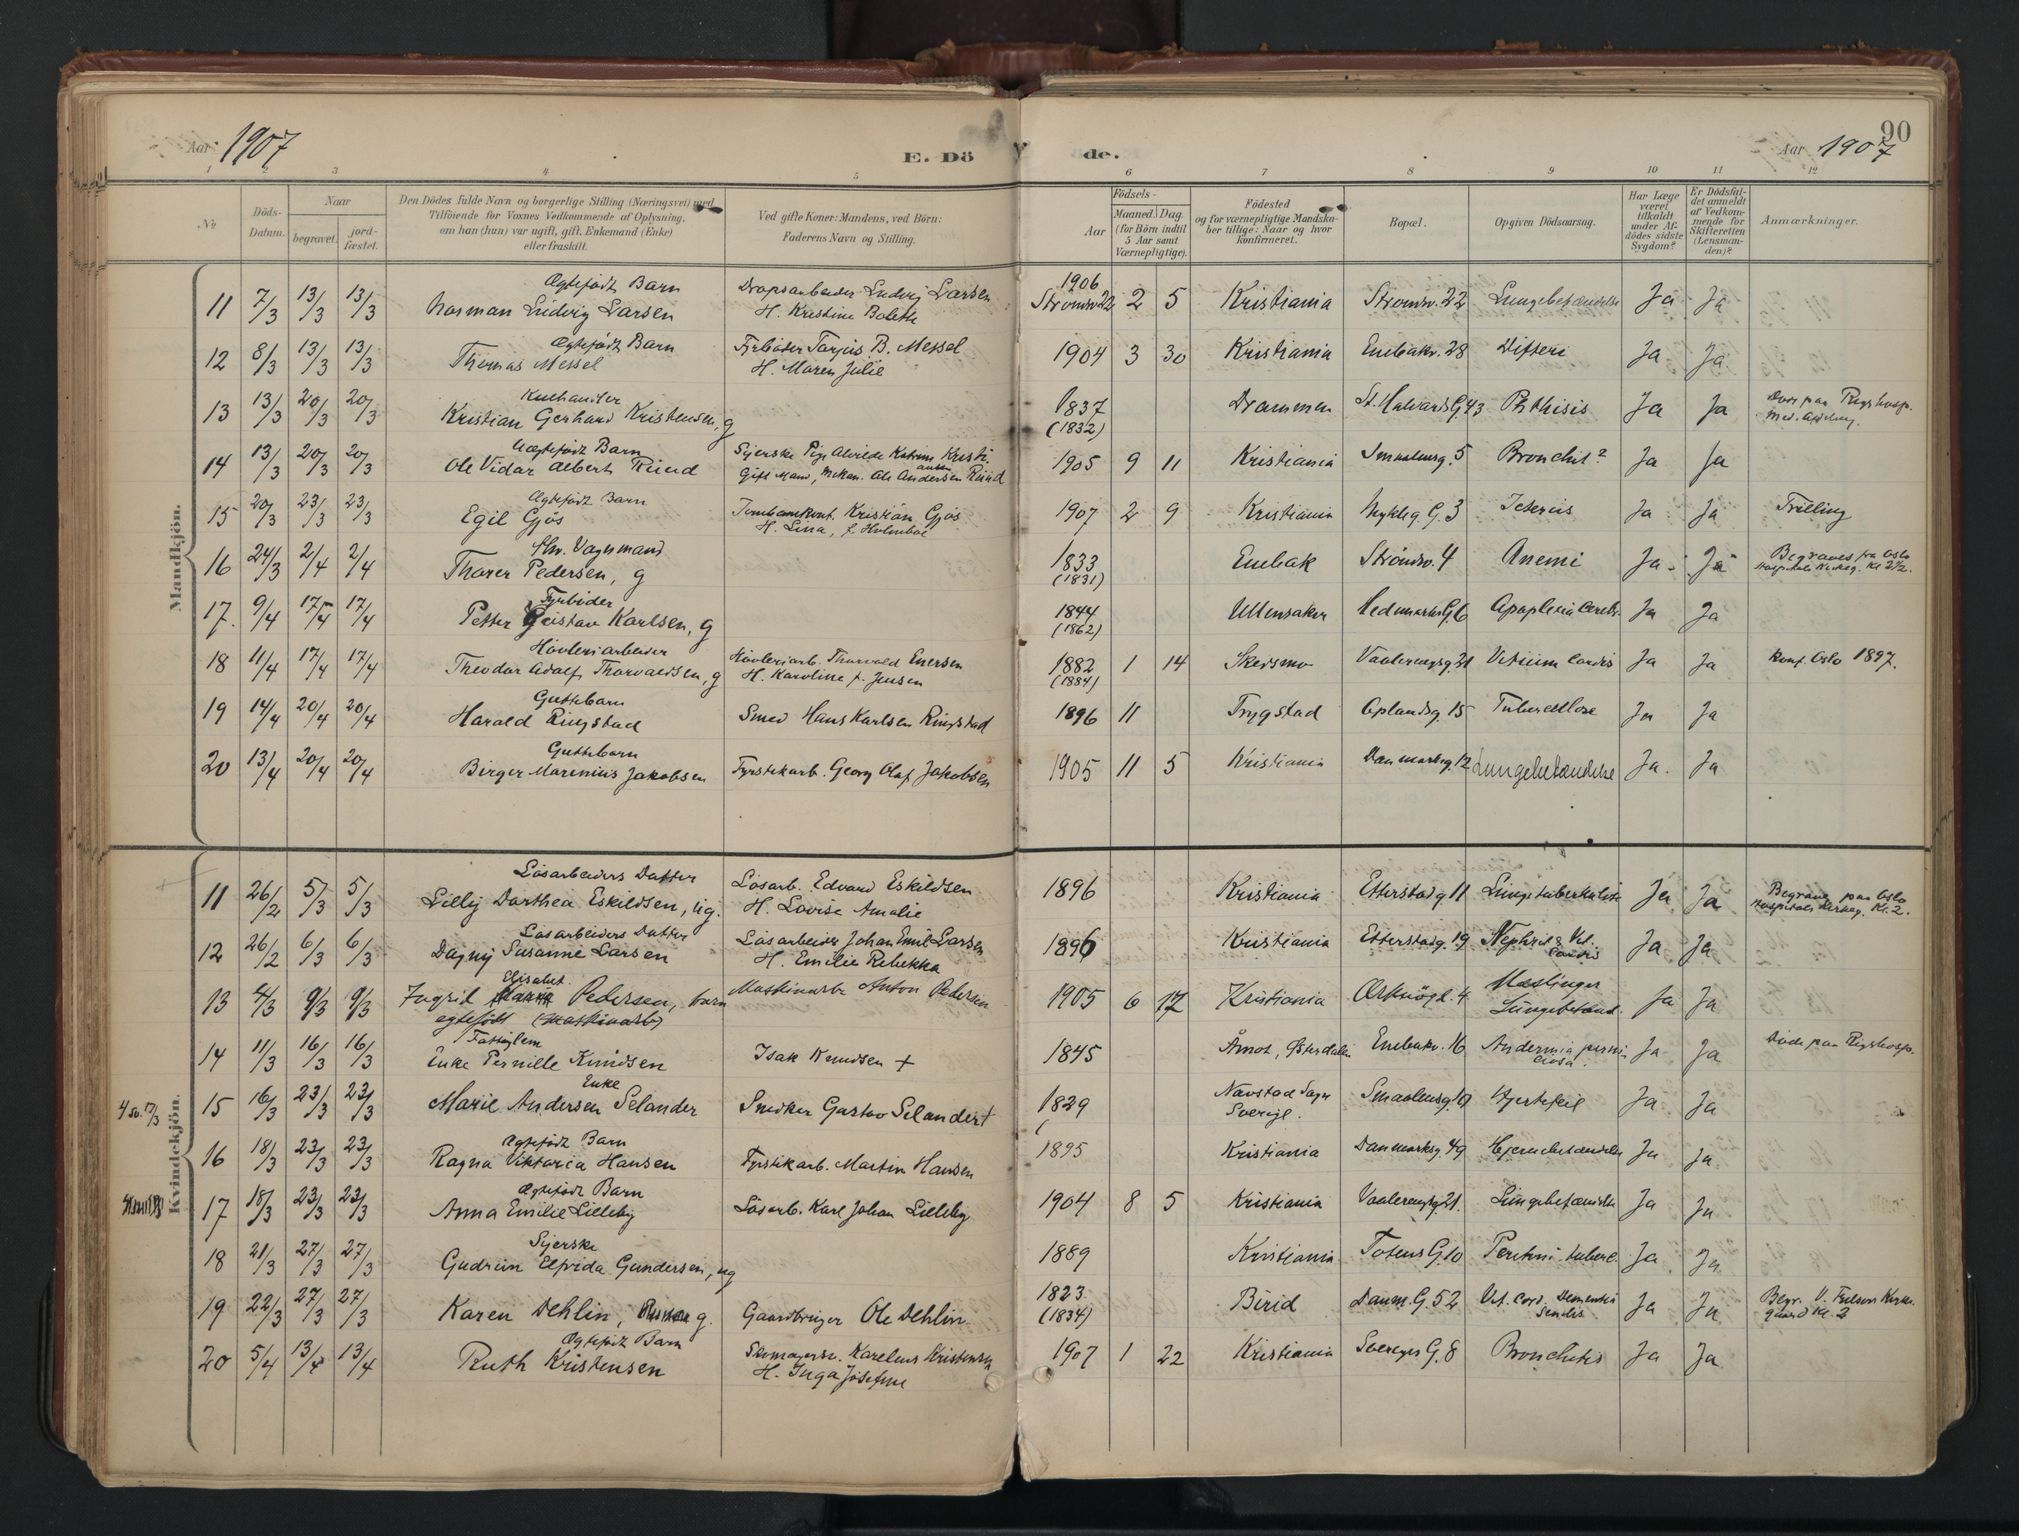 Aar 1907
E. Döde.
Aar 1907
90
1 2 3 4 5 6 7 8 9 10 11 12
No
Döds-Datum.
Naar
begravet.
jord-fæstet.
Den Dödes fulde Navn og borgerlige Stilling (Næringsvei) med
Tilföiende för Voxnes Vedkommende af Oplysning,
om han (hun) var ugift, gift, Enkemand (Enke)
eller fraskilt.
Ved gifte Koner: Mandens, ved Börn:
Faderens Navn og Stilling.
Födsels-
Aar
Maaned. Dag.
(for Börn indtil
5 Aar samt
Værnepligtige).
Födested
og for værnepligtige Mandskaber tillige: Naar og hvor
konfirmeret.
Bopæl.
Opgiven Dödsaarsag.
Har Læge
været
tilkaldt
under Afdödes sidste
Sygdom?
Er Dödsfaldet anmeldt
af Vedkommende for
Skifteretten
(Lensmanden)?
Anmærkninger.
Mandkjön.
11 7/3 13/3 13/3 Ægtefödt Barn
Norman Ludvig Larsen
Dropsarbeider Ludvig Larsen
H. Kristine Bolette
1906
Strömsv 22 2 5 Kristiania Strömsv. 22 Lungebetændelse Ja Ja
12 8/3 13/3 13/3 Ægtefödt Barn
Thomas Messel
Fyrböder Tarjus B. Messel
H. Maren Julie
1904 3 30 Kristiania Enebakv. 28 Difteri Ja Ja
13 13/3 20/3 20/3 Kulhandler
Kristian Gerhard Kristensen, g
1837
(1832)
Drammen St. Halvards G 43 Phthisis Ja Ja Död paa Rigshosp.
Med. Afdeling.
14 13/3 20/3 20/3 Uægtefödt Barn
Ole Vidar Albert Ruud
Syerske Pige Alvilde Katrine Kristiansen
Gift Mand, Mekan. Ole Andersen Ruud
1905 9 11 Kristiania Smaalensg. 5 Bronchit? Ja Ja
15 20/3 23/3 23/3 Ægtefödt Barn
Egil Gjös
Tombankkont. Kristian Gjös
H. Lina, f. Holmboe
1907 2 9 Kristiania Nykleg G. 3 Icterus Ja Ja Trilling
16 24/3 2/4 2/4 Fhv. Vognmand
Thorer Pedersen, g
1833
(1831)
Enebak Strömsv. 4 Anemi Ja. Ja Begraves fra Oslo
Hospitals Kirkeg. Kl 2 1/2.
17. 9/4 17/4 17/4 Fyrböder
Petter Gustav Karlsen, g
1844
(1862)
Ullensaker Hedemarks G. 6 Apoplexia Cerebri Ja Ja
18 11/4 17/4 17/4 Hövleriarbeider
Theodor Adolf Thorvaldsen, g
Hövleriarb. Thorvald Enersen
H. Karoline f. Jensen
1882
(1884)
1 14 Skedsmo Vaalerengsg. 21 Vitium Cordis Ja Ja Konf. Oslo 1897.
19 14/4 20/4 20/4 Guttebarn
Harald Ringstad
Smed Hans Karlsen Ringstad
1896 11 Trygstad Oplandsg. 15 Tuberculose Ja Ja
20 13/4 20/4 20/4 Guttebarn
Birger Marenius Jakobsen
Fyrstikarb. Georg Olaf Jakobsen
1905 11 5 Kristiania Danmarksg. 12 Lungebetændelse Ja. Ja
Kvindekjön.
11 26/2 5/3 5/3 Lösarbeiders Datter
Lilly Dorthea Eskildsen, ug.
Lösarb. Edvard Eskildsen
H. Lovise Amalie
1896 Kristiania Etterstadg 11 Lungetuberkulose Ja Ja Begraves paa Oslo
Hospitals Kirkeg. Kl. 2.
12 26/2 6/3 6/3 Lösarbeiders Datter
Dagny Susanne Larsen
Lösarbeider Johan Emil Larsen
H. Emilie Rebekka
1896 Kristiania Etterstadg. 19 Nephrit & Vit.
Cordis
Ja Ja
13 4/3 9/3 9/3 Elisabet
Ingrid Pedersen, barn
egtefödt (Maskinarb)
Maskinarb Anton Pedersen
1905 6 17 Kristiania Arknögl. 4 Mæslinger
Lungebetænd.
Ja Ja
14 11/3 16/3 16/3 Fattiglem
Enke Pernille Knudsen
Isak Knudsen +
1845 Åmot, Østerdalen Enebakv. 16 Ja Ja Döde paa Rigshosp.
4 so. 17/3
15 16/3 23/3 23/3 Enke
Marie Andersen Selander
Snedker Gustav Selander +
1829
Sverige.
Smaalensg. 10 Hjertefeil Ja Ja
16 18/3 23/3 23/3 Ægtefödt Barn
Ragna Viktoria Hansen
Fyrstikarb. Martin Hansen
1895 Kristiania Danmarksg. 49 Hjernebetændelse Ja Ja
17 18/3 23/3 23/3 Ægtefödt Barn
Anna Emilie Lilleby
Lösarb. Karl Johan Lilleby
1904 8 5 Kristiania Vaalerengsg. 21. Lungebetændelse Ja Ja
18 21/3 27/3 27/3 Syerske
Gudrun Elfrida Gundersen, ug
1889 Kristiania Totens G. 10 Peritoni. tuberc. Ja Ja
19 22/3 27/3 27/3 Karen Dehlin, g.
Gaardbruger Ole Dehlin
1823
(1834)
Birid Danm. G. 52 Vit. Cord. Dementia
Senilis
Ja Ja Begr. V. Frelsers Kirkegaard Kl. 2
20 5/4 13/4 13/4 Ægtefödt Barn
Ruth Kristensen
Skomagersv. Karelius Kristensen
H. Inga Josefine
1907 1 22 Kristiania Sveriges G. 8 Bronchitis Ja Ja